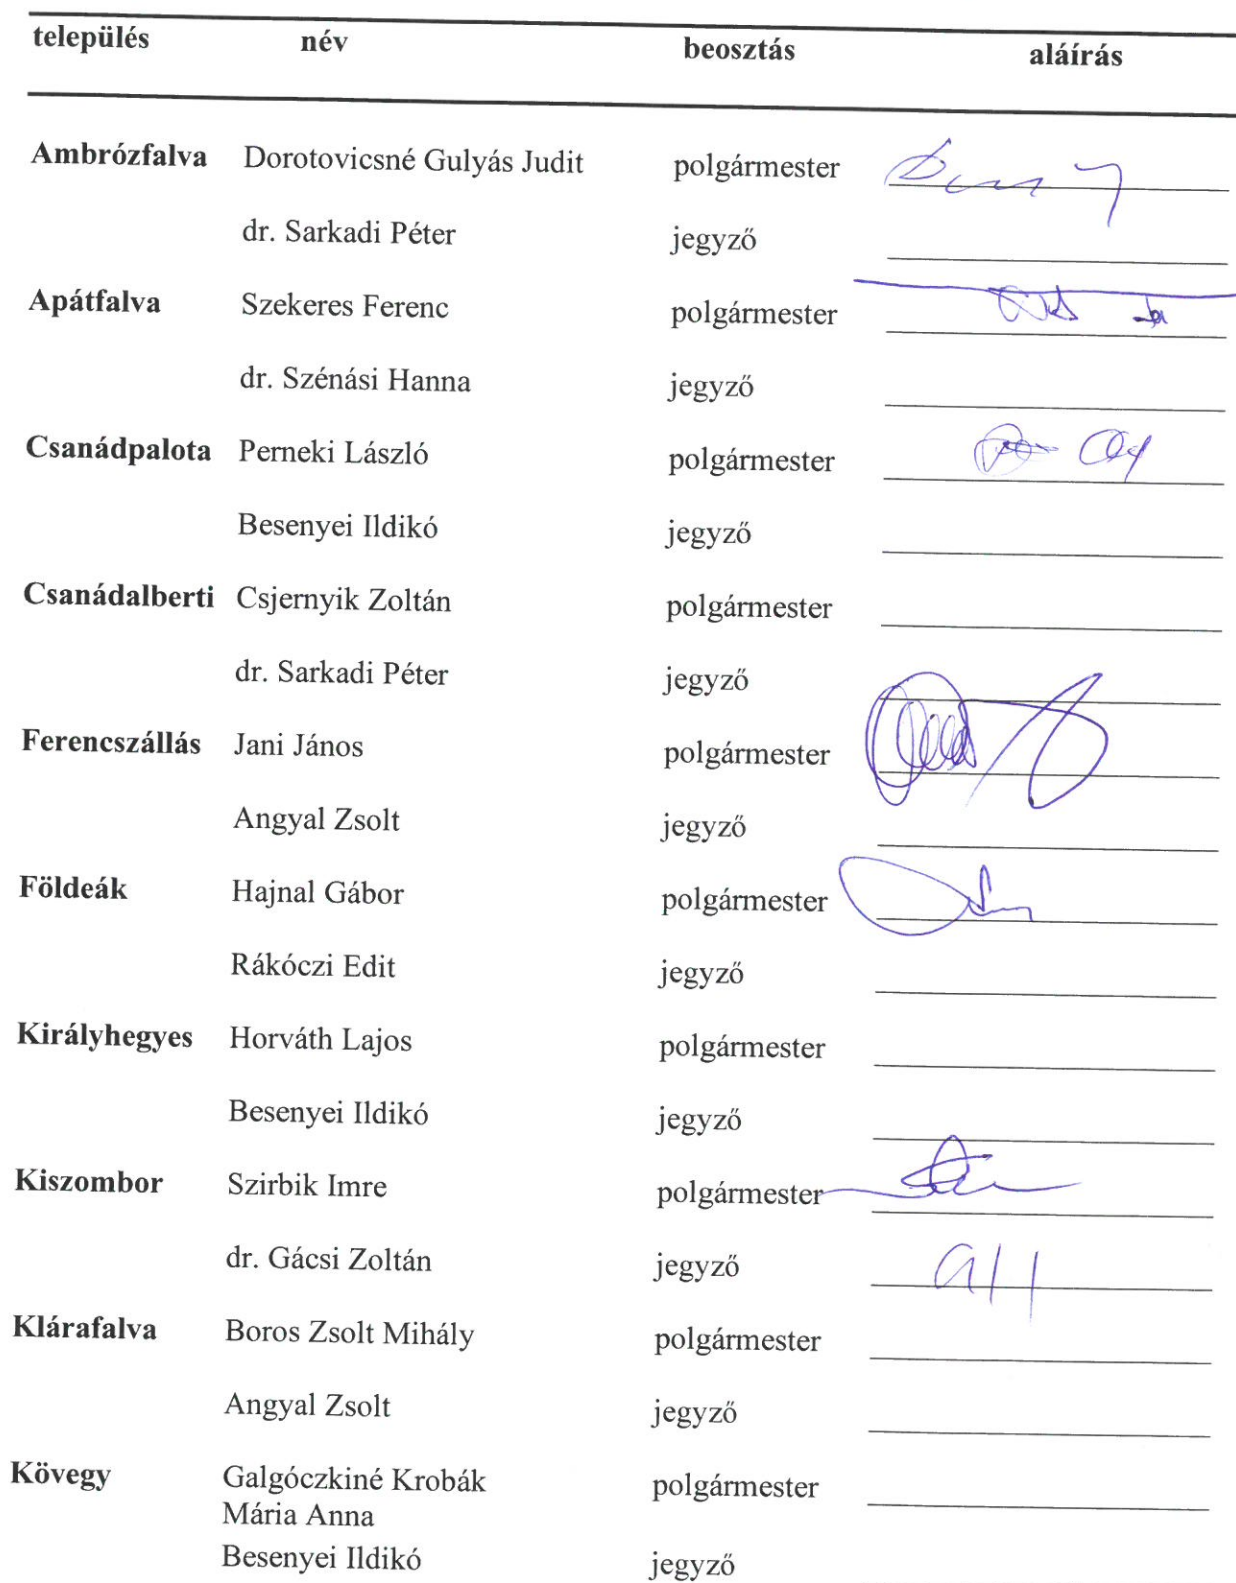 település név beosztás aláírás
Ambrózfalva Dorotovicsné Gulyás Judit polgármester
dr. Sarkadi Péter jegyző
Apátfalva Szekeres Ferenc polgármester
dr. Szénási Hanna jegyző
Csanádpalota Perneki László polgármester
Besenyei Ildikó jegyző
Csanádalberti Csjernyik Zoltán polgármester
dr. Sarkadi Péter jegyző
Ferencszállás Jani János polgármester
Angyal Zsolt jegyző
Földeák Hajnal Gábor polgármester
Rákóczi Edit jegyző
Királyhegyes Horváth Lajos polgármester
Besenyei Ildikó jegyző
Kiszombor Szirbik Imre polgármester
dr. Gácsi Zoltán jegyző
Klárafalva Boros Zsolt Mihály polgármester
Angyal Zsolt jegyző
Kövegy Galgóczkiné Krobák polgármester
Mária Anna
Besenyei Ildikó jegyző